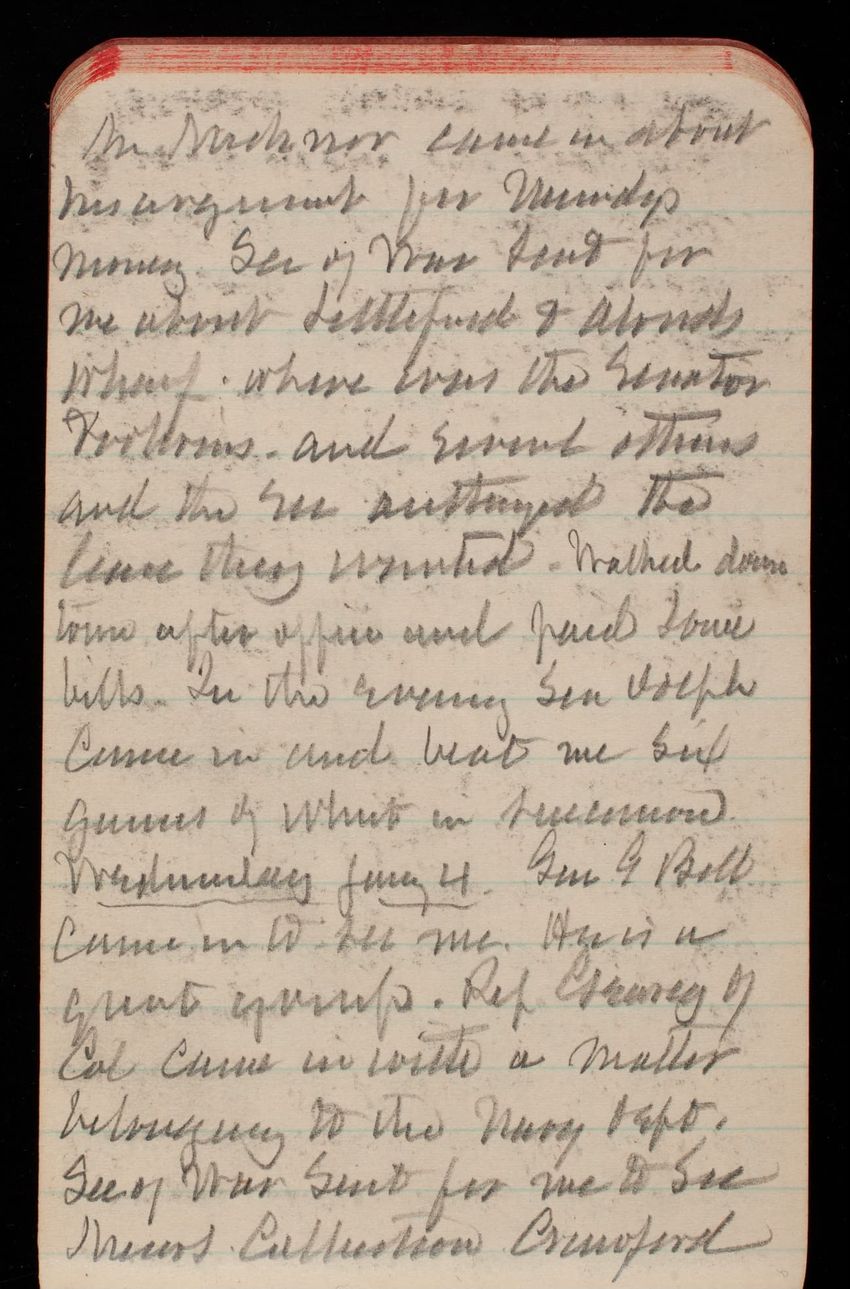 came in about
his argument for
money Sec of War Sent for
me about Littlefield &
Wharf. where was the Senator
and several others
and the Sec the
lease they wanted. Walked down
town after office and paid some
bills. In the evening Sen Dolph
Came in and beat me six
games of Whist in succession.
Wednesday Jany 4. Gen G Bell
Came in to see me. He is a
great gossip. Rep of
Col Came in with a matter
belonging to the Navy Dept.
Sec of War Sent for me to See
Collection Crawford